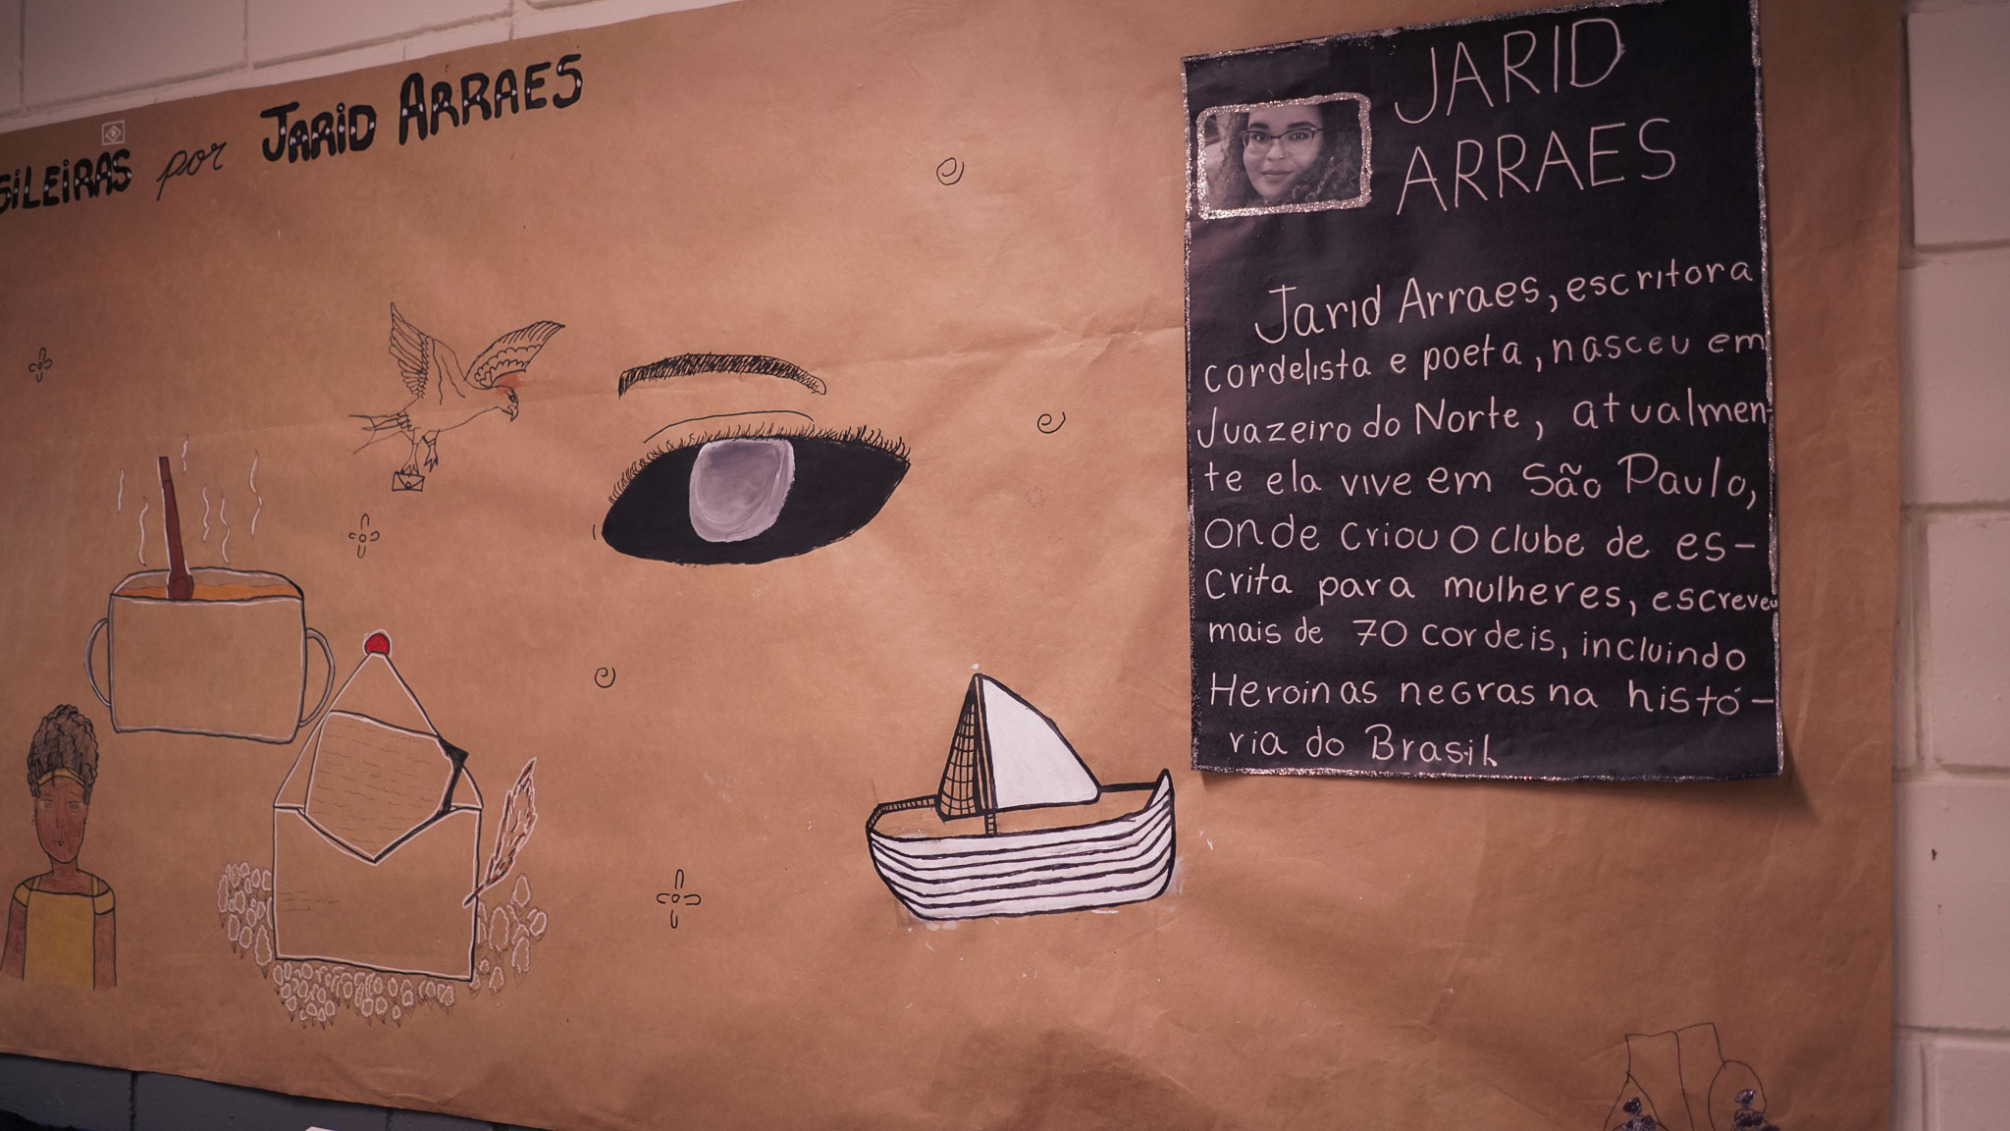 SILEIRAS por JARID ARRAES
JARID
ARRAES
Jarid Arraes, escritora
cordelista e poeta, nasceu em
Juazeiro do Norte, atualmen-
te ela vive em São Paulo,
onde criou o clube de es-
crita para mulheres, escreveu
mais de 70 cordeis, incluindo
Heroinas negras na histó-
ria do Brasil